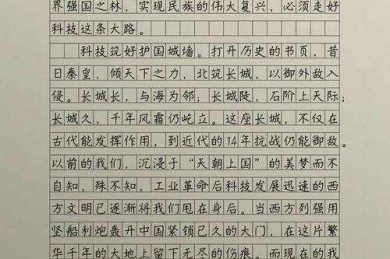 界强国之林，实现民族的伟大复兴，必须走好
科技这条大路。
科技筑好护国城墙。打开历史的书页，昔
日秦皇，倾天下之力，北筑长城，以御外敌入
侵。长城长，与海为邻；长城陡，石阶上天际；
长城久，千年风霜仍屹立。这座长城，不仅在
古代能发挥作用，到近代的14年抗战仍能御敌。
以前的我们，沉浸于“天朝上国”的美梦而不
自知，殊不知，工业革命后科技发展迅速的西
方文明已逐渐将我们甩在身后。当西方列强用
坚船利炮轰开中国紧锁已久的大门，在这片繁
华千年的大地上留下无尽的伤痕。而现在的我